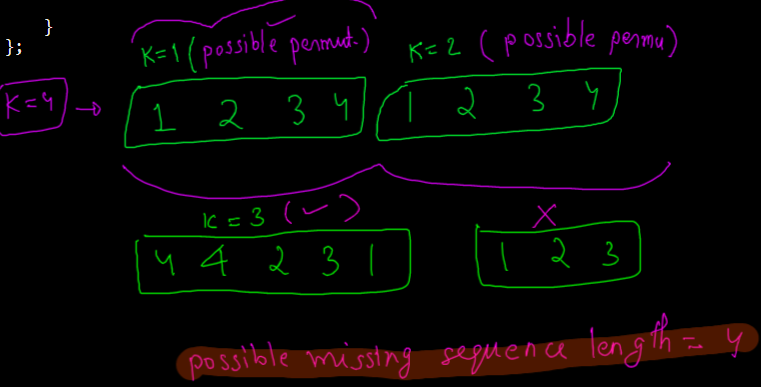 }
};
K=1 (possible permut.) K=2 (possible permu)
K=4 → 1 2 3 4 1 2 3 4
K=3 (✓) X
4 4 2 3 1 1 2 3
possible missing sequence length = 4